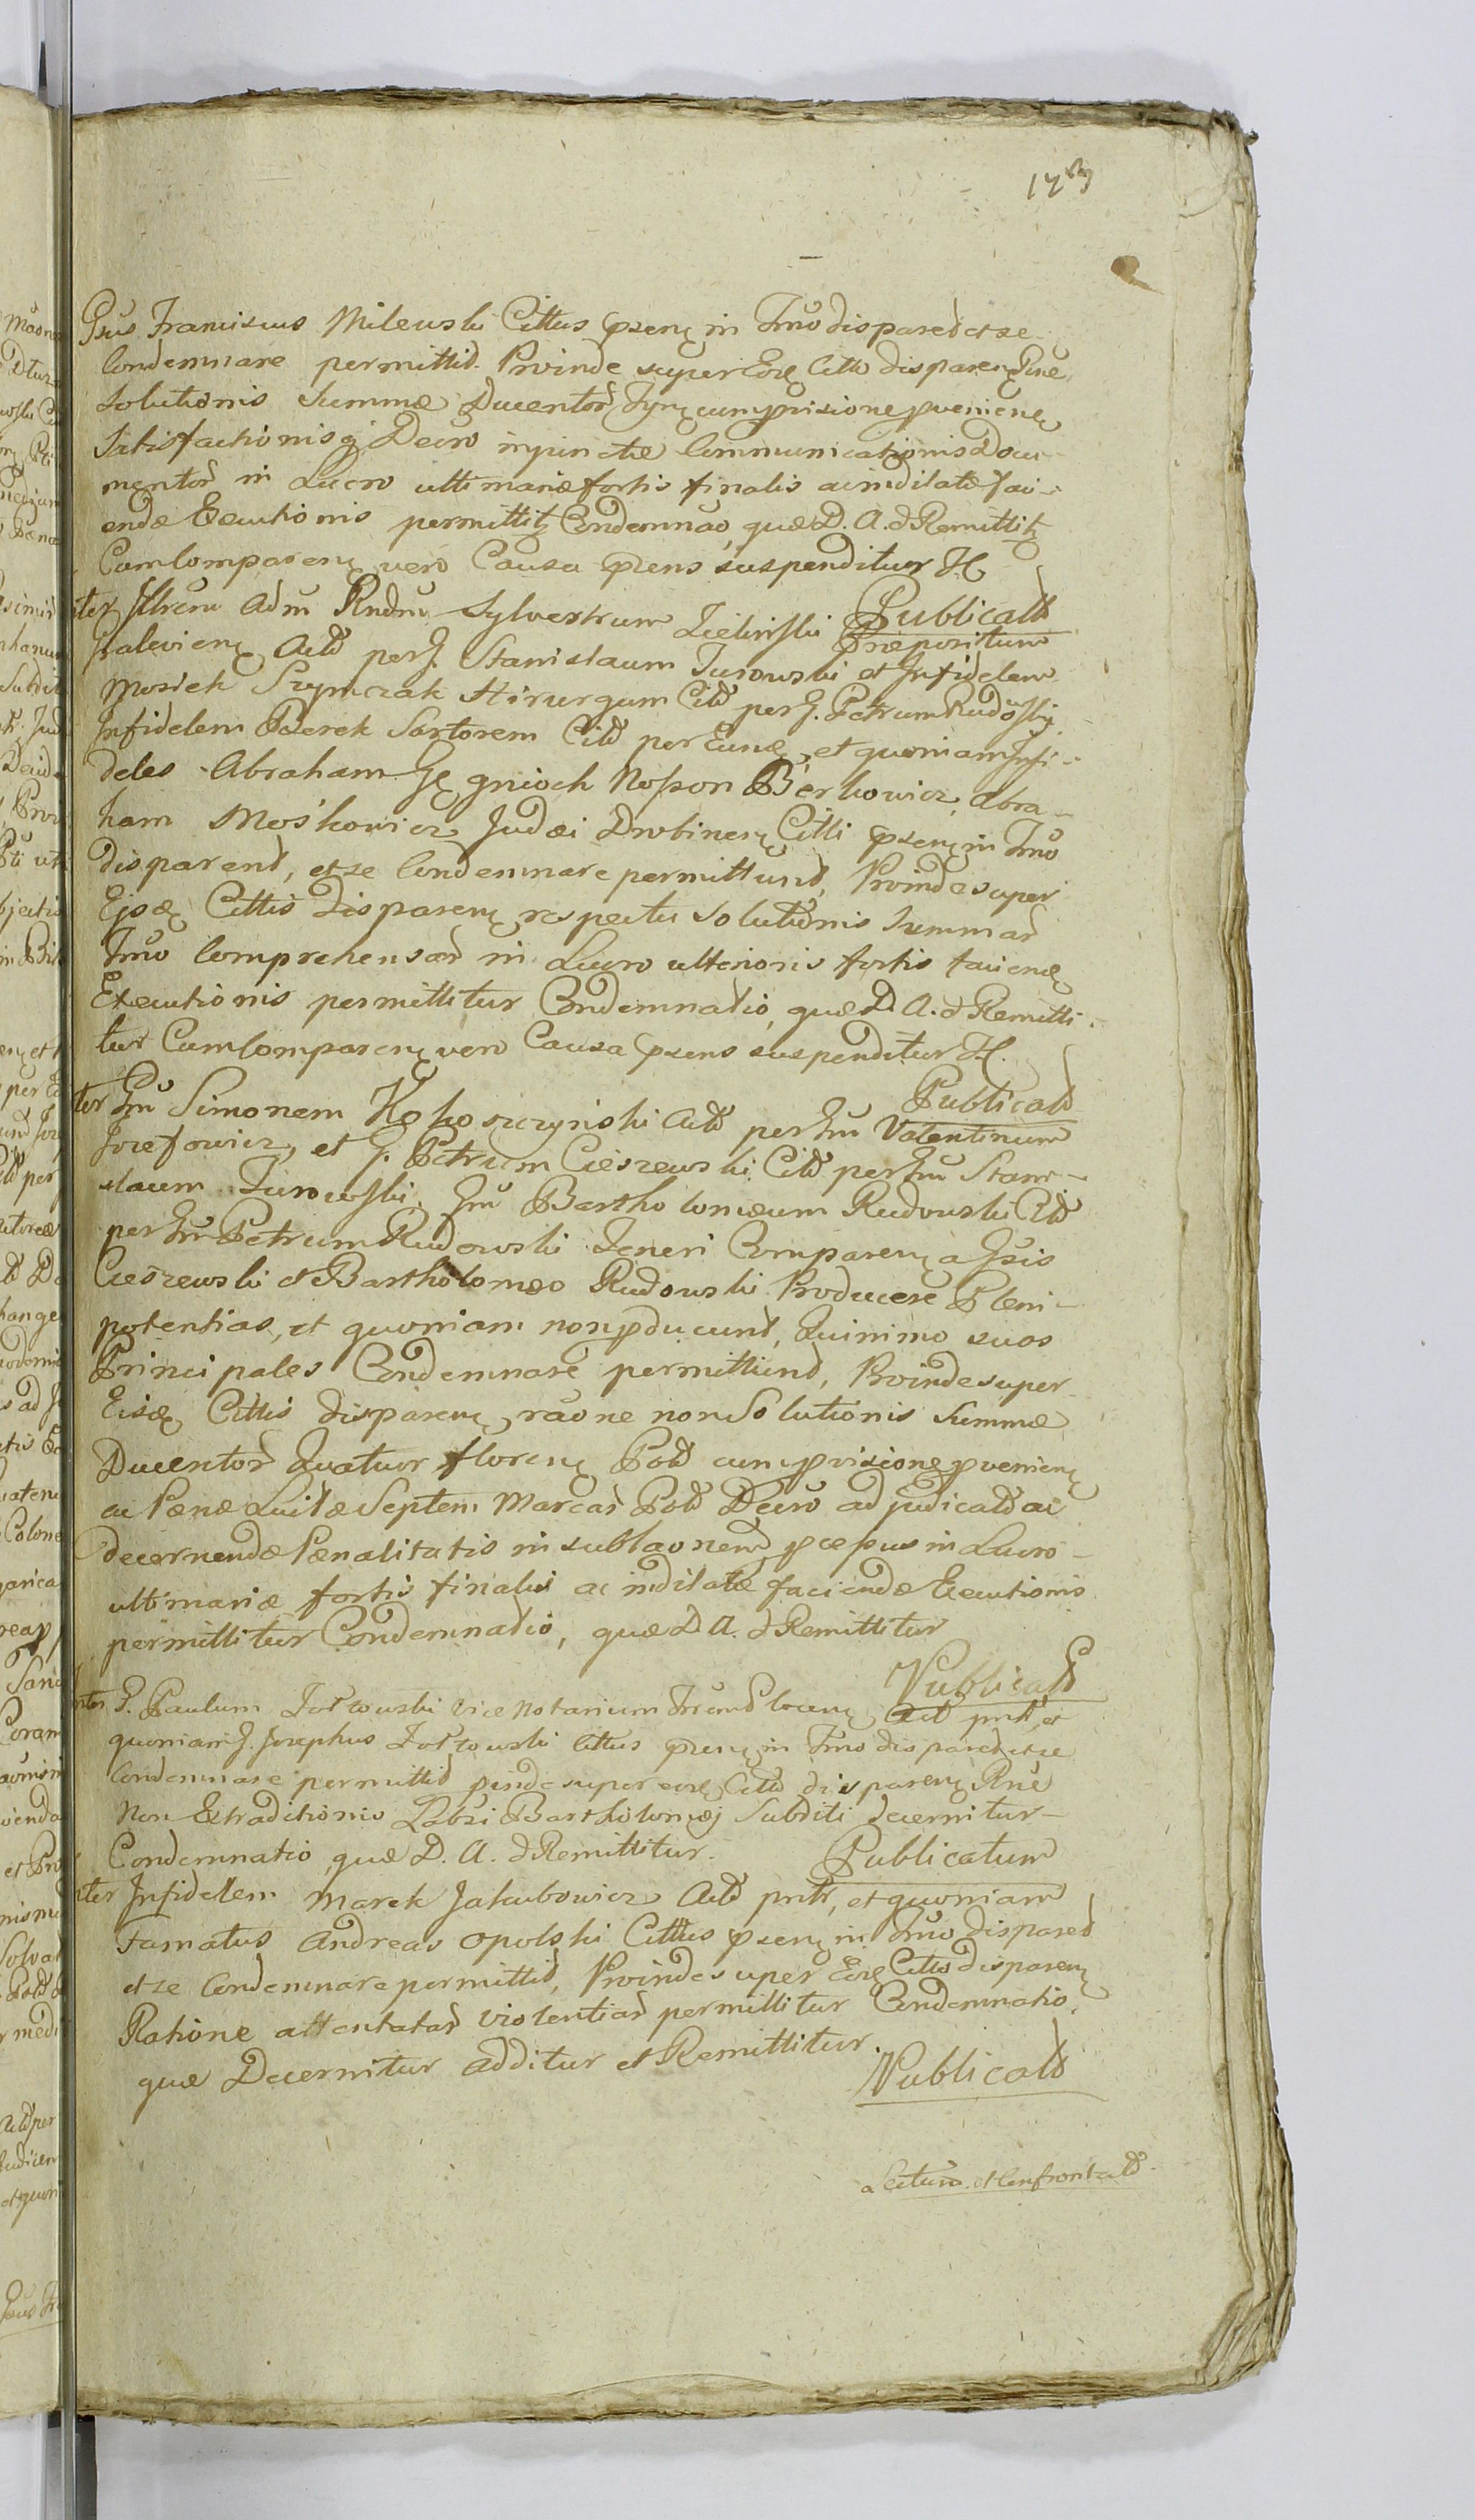 Gnus Franciscus Milewski Cittus psens in Tmo disparet et se
Condemnare permittit. Proinde super Eosq Citto disparens Rne
Solutionis Summæ Ducentor Tyn cum provisione proveniens
Satisfactionis q Decro injunctæ Communicationis Docu-
mentor in Lucro ultimariæ fortis finalis ac indilatæ faci-
endæ Exeutionis permittitz Condemnao, quæ D. A. & Remittitz
Cum Comparens vero Causa psens suspenditur H.
Publicat
ter Illrem Adm Rndm Sylvestrum Zieliński Præpositum
Act per G. Stanislaum Turowski et Infidelem
Mosiek Szymczak Hirurgum Cit per G. Petrum Rudowski,
Infidelem Berek Sartorem Cit per Eunq, et quoniam Infi-
deles Abraham Noszon Berkowicz, Abra-
ham Moskowicz Judæi Drobinens Citti psens in Tmo
disparent, et se Condemnare permittunt, Proinde super
Eisq Cittis disparens respectu Solutionis Summar
Tmo Comprehensar in Lucro ulterioris fortis faciend
Exeutionis permittitur Condemnatio, quæ D. A. & Remitti-
tur Cum Comparens vero Causa psens suspenditur H.
Publicat
ter Gm Simonem Kokoszczyński Act per Gm Valentinum
Jozefowicz, et G. Petrum Cieszewski Cit per Gm Stani-
slaum Turowski, Gm Bartholomæum Rudowski Cit
per Gm Petrum Rudowski Teneri Comparens a Gsis
Cieszewski et Bartholomæo Rudowski Producere Pleni-
potentias, et quoniam non pducunt, Quinimo suos
Principales Condemnare permittunt, Proinde super
Eisq Cittis disparens raone non Solutionis Summæ
Ducentor Quatuor florens Pol cum pvisione pveniens
ac Pænæ Luitæ Septem Marcar Pol Decro adjudicat ac
decernendæ Pænalitatis in in Lucro
ultimariæ fortis finalis ac indilatæ faciendæ Exeutionis
permittitur Condemnatio, quæ D. A. & Remittitur
Publicat
nter G. Paulum Zottowski Vice Notarium Act pntr, et
quoniam G. Josephus Zottowski Cittus psens in Tmo disparet et se
Condemnare permittit pinde super eosq Citto disparens Rne
Non Extraditionis Labsi Bartholomæj Subditi decernitur
Condemnatio quæ D. A. & Remittitur. Publicatum
nter Infidelem Marek Jakubowicz Act pntr, et quoniam
Famatus Andreas Opolski Cittus psens in Tmo disparet
et se Condemnare permittit, Proinde super Eosq Citto disparens
Ratione attentatar violentiar permittitur Condemnatio,
quæ Decernitur additur et Remittitur.
Publicat
a Lectura et Confrontat